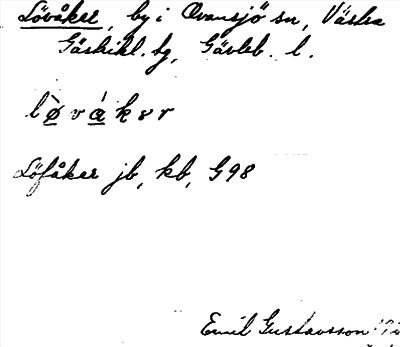 Lövåker, by i Ovansjö sn, Västra
Gästrikl. tg, Gävleb. l.
lø̀vákər
Löfåker jb, kb, G98
Emil Gustavsson